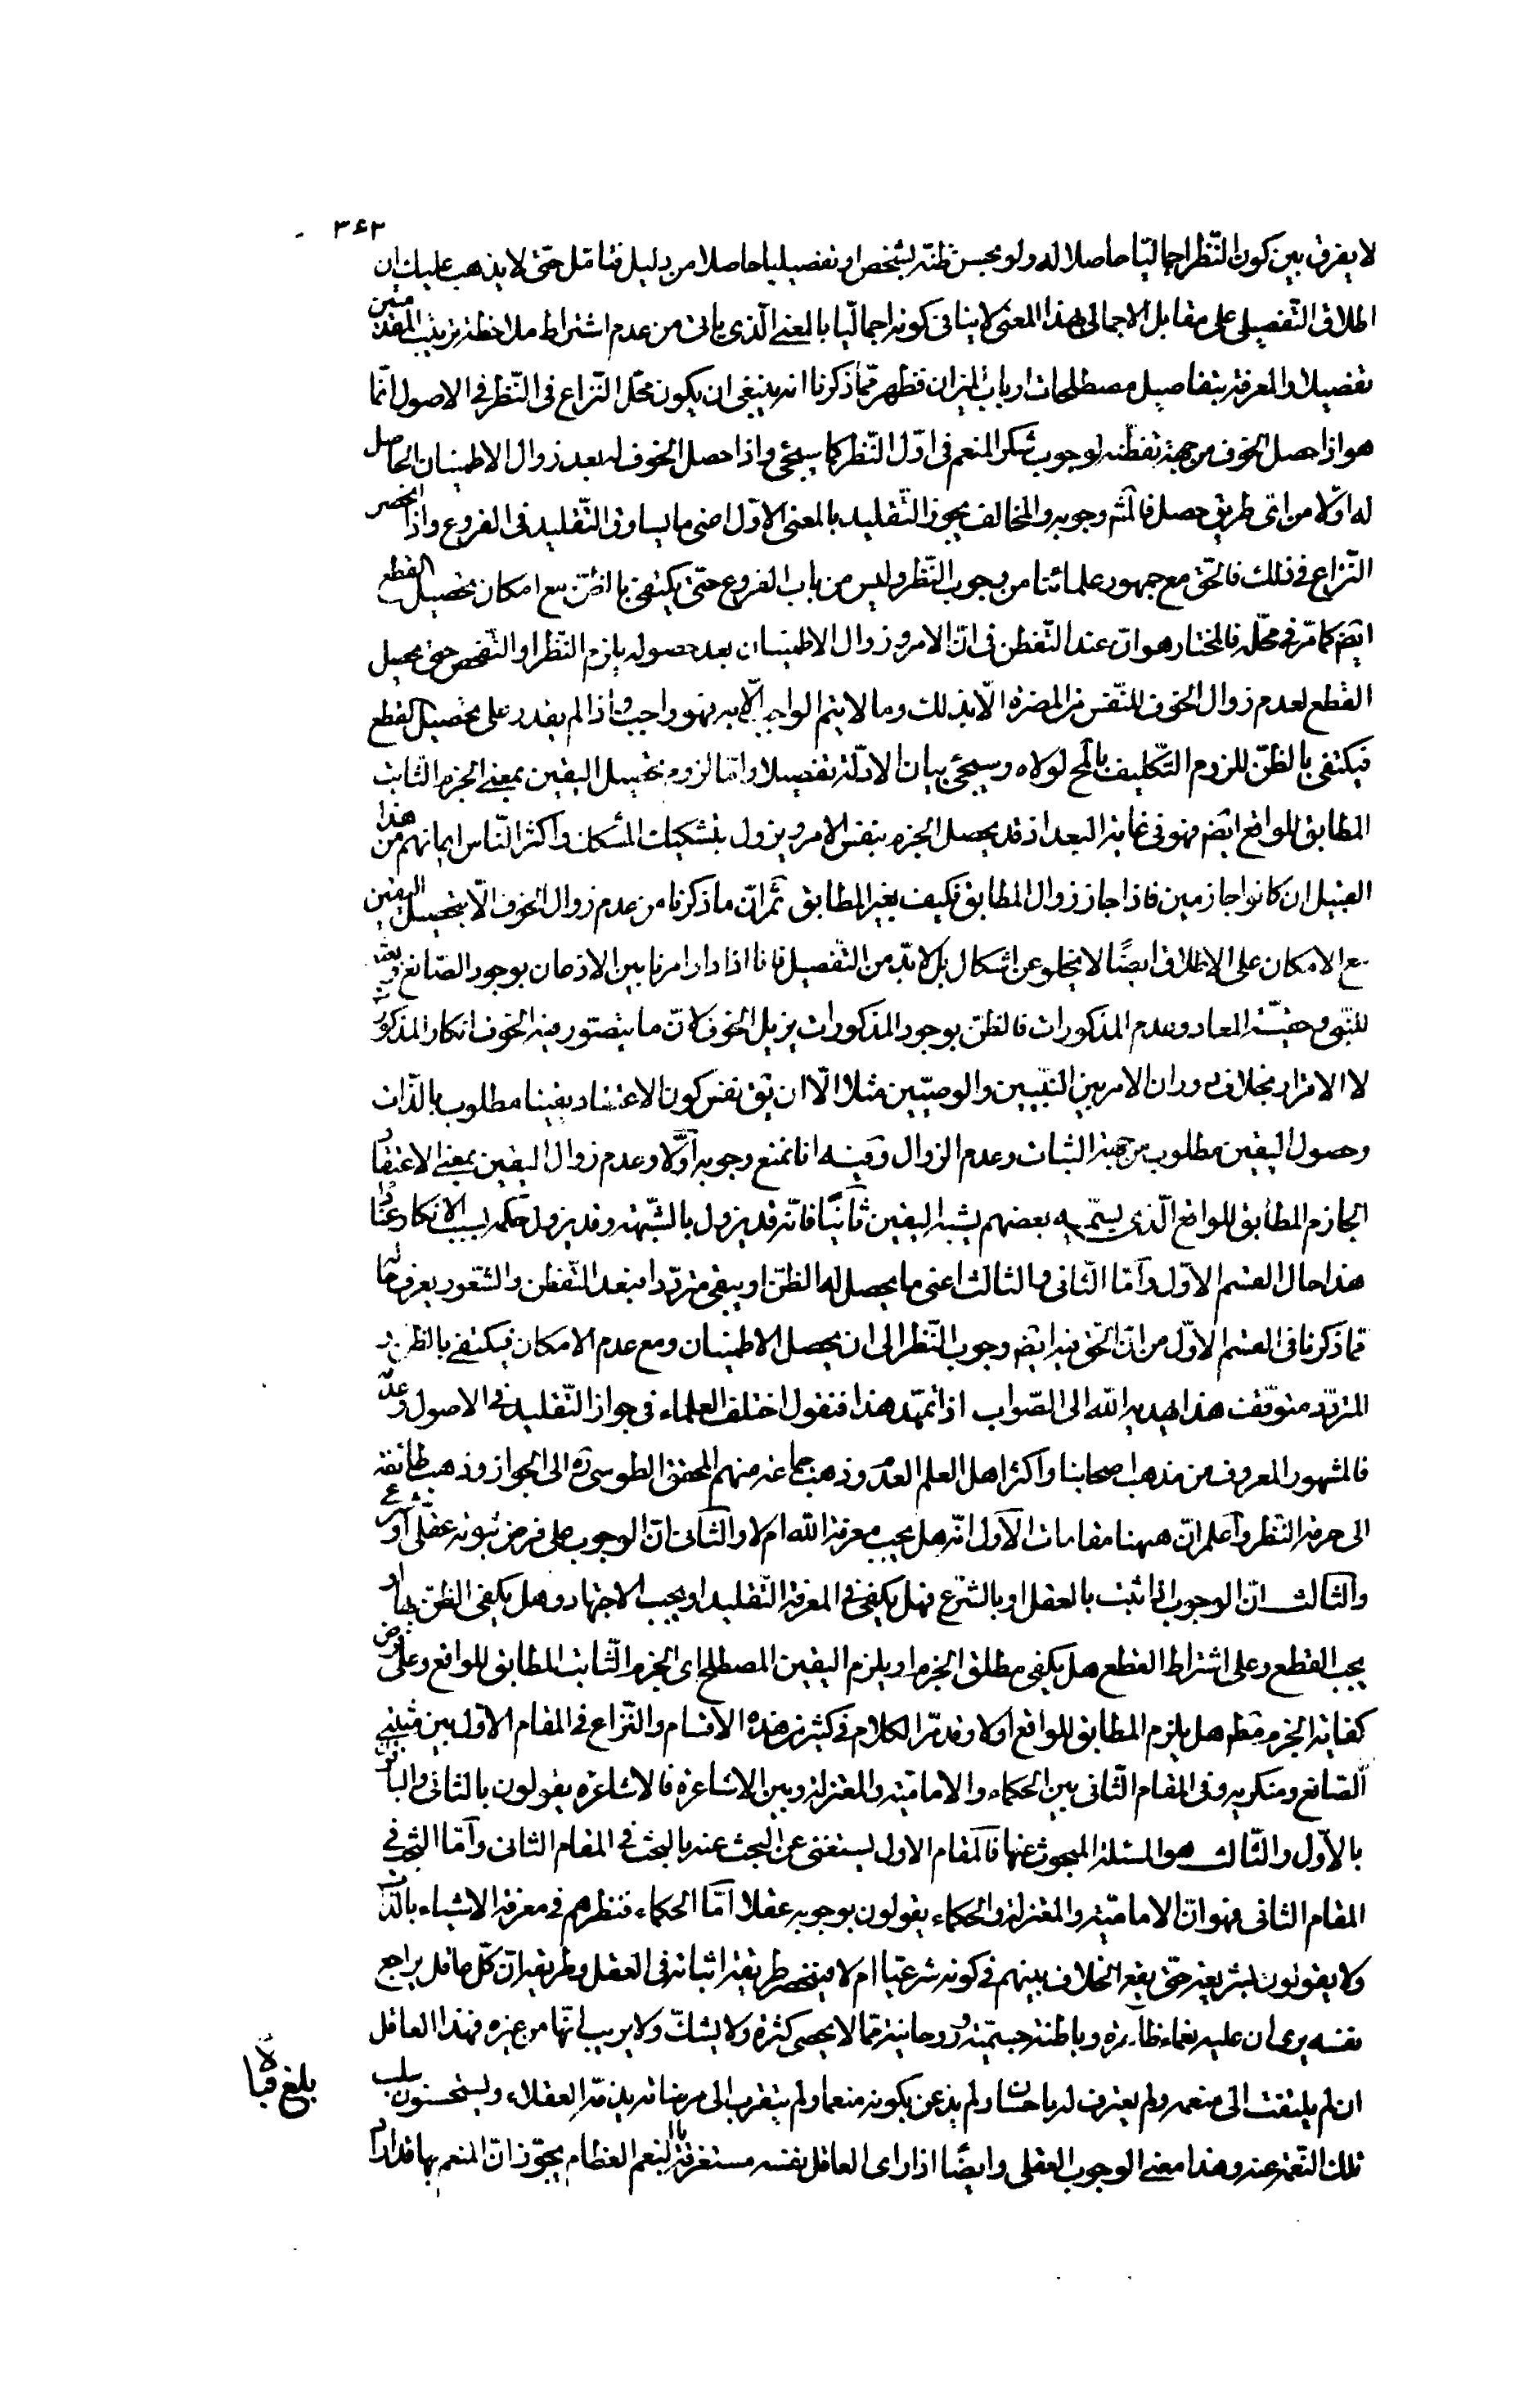 ٣۶٣
لا يفرق بين كون النّظر اجماليّا حاصلا له ولو بحسن ظنّه بشخص او تفصيليا حاصلا من دليل فتامّل حتى لا يذهب عليك ان
اطلاق التّفصيلى على مقابل الاجمالى بهذا المعنى لا ينافى كونه اجماليّا بالمعنى الّذى ياتى من عدم اشتراط ملاحظة ترتيب المقدمتين
تفصيلا والمعرفة بتفاصيل مصطلحات ارباب الميزان فظهر ممّا ذكرنا انه ينبغى ان يكون محلّ النّزاع فى النّظر فى الاصول انّما
هو اذا حصل الخوف من جهة تفطّنه لوجوب شكر المنعم فى اوّل النّظر كما سيجئ واذا حصل الخوف له بعد زوال الاطمينان الحاصل
له اوّلا من اىّ طريق حصل فالمثبت وجوبه والمخالف يجوز التّقليد بالمعنى الاوّل اعنى ما يساوق التّقليد فى الفروع واذا انحصر
النّزاع فى ذلك فالحقّ مع جمهور علمائنا من وجوب النّظر وليس من باب الفروع حتّى يكتفى بالظّن مع امكان تحصيل القطع
ايضا كما مرّ فى محلّه فالمختار هو انّ عند التّفطن فى اوّل الامر وزوال الاطمينان بعد حصوله يلزم النّظر او التّفحص حتى يحصل
القطع لعدم زوال الخوف للنّفس من المضرة الّا بذلك وما لا يتم الواجب الّا به فهو واجب واذا لم يقدر على تحصيل القطع
فيكتفى بالظّن للزوم التّكليف بالمح لولاه وسيجئ بيان الادلّة تفصيلا وامّا لزوم تحصيل اليقين بمعنى الجزم الثّابت
المطابق للواقع ايضا فهو فى غاية البعد اذ قد يحصل الجزم بنفس الامر ويزول بتشكيك المشكك واكثر النّاس ايمانهم من هذا
القبيل ان كانوا جازمين فاذا جاز زوال المطابق فكيف بغير المطابق ثمّ انّ ما ذكرنا من عدم زوال الخوف الّا بتحصيل اليقين
مع الامكان على الاطلاق ايضًا لا يخلو عن اشكال بل لا بدّ من التّفصيل فانا اذا دار امرنا بين الاذعان بوجود الصّانع وبعثة
للنّبى وحقيّة المعاد وعدم المذكورات فالظنّ بوجود المذكورات يزيل الخوف لانّ ما يتصوّر فيه الخوف انكار المذكورات
لا الاقرار بخلاف دوران الامر بين النّبيين والوصيّين مثلا الّا ان يق نفس كون الاعتقاد يقينا مطلوب بالذّات
وحصول اليقين مطلوب من جهة الثبات وعدم الزوال وفيه انا نمنع وجوبه اوّلا وعدم زوال اليقين بمعنى الاعتقاد
الجازم المطابق للواقع الّذى يسمّيه بعضهم يشبه اليقين ثانيًا فانّه قد يزول بالشّبهة وقد يزول حكمه بسبب الانكار عنادا
هذا حال القسم الاوّل وامّا الثّانى والثالث اعنى ما يحصل له الظنّ او يبقى متردّدا فبعد التّفطن والشّعور يعرف حاله
ممّا ذكرنا فى القسم الاوّل من انّ الحقّ فيه ايضا وجوب النّظر الى ان يحصل الاطمينان ومع عدم الامكان فيكتفى بالظنّ و
المتردّد متوقّف هذا يهديه الله الى الصّواب اذا تمهّد هذا فنقول اختلف العلماء فى جواز التّقليد فى الاصول وعدمه
فالمشهور المعروف من مذهب اصحابنا واكثر اهل العلم العدم وذهب جماعة منهم المحقق الطوسى ره الى الجواز وذهب طائفة
الى حرمة النّظر واعلم انّ ههنا مقامات الاول انّه هل يجب معرفة الله ام لا والثّانى انّ الوجوب على فرض ثبوته عقلى او شرعى
والثالث انّ الوجوب اذا ثبت بالعقل او بالشّرع فهل يكفى فى المعرفة التّقليد او يجب الاجتهاد وهل يكفى الظنّ بها او
يجب القطع وعلى اشتراط القطع هل يكفى مطلق الجزم او يلزم اليقين المصطلح اى الجزم الثّابت المطابق للواقع وعلى فرض
كفاية الجزم فقط هل يلزم المطابق للواقع اولا وقد مرّ الكلام فى كثير من هذه الاقسام والنّزاع فى المقام الاوّل بين مثبتى
الصّانع ومنكريه وفى المقام الثّانى بين الحكماء والاماميّة والمعتزلة وبين الاشاعرة فالاشاعرة يقولون بالثانى والباقون
بالاوّل والثّالث هو المسئلة المبحوث عنها فالمقام الاول يستغنى عن البحث عنه بالبحث فى المقام الثانى وامّا البحث فى
المقام الثانى فهو انّ الاماميّة والمعتزلة والحكماء يقولون بوجوبه عقلا امّا الحكماء فنظرهم فى معرفة الاشياء بالذّات
ولا يقولون بشريعة حتى يقع الخلاف بينهم فى كونه شرعيّا ام لا فينحصر طريقة اثباته فى العقل وطريقه انّ كلّ عاقل يراجع
نفسه يرى ان عليه نعماء ظاهرة وباطنة جسميّة وروحانية ممّا لا يحصى كثرة ولا يشكّ ولا يريب انّها من غيره فهذا العاقل
ان لم يلتفت الى منعمه ولم يعترف له باحسان ولم يذعن بكونه منعما ولم يتقرب الى مرضاته يذمّه العقلاء ويستحسنون سلب
تلك النّعمة عنه وهذا معنى الوجوب العقلى وايضًا اذا راى العاقل نفسه مستغرقة بالنعم العظام يجوّز انّ المنعم بها قد اراد
بلغ قبالا